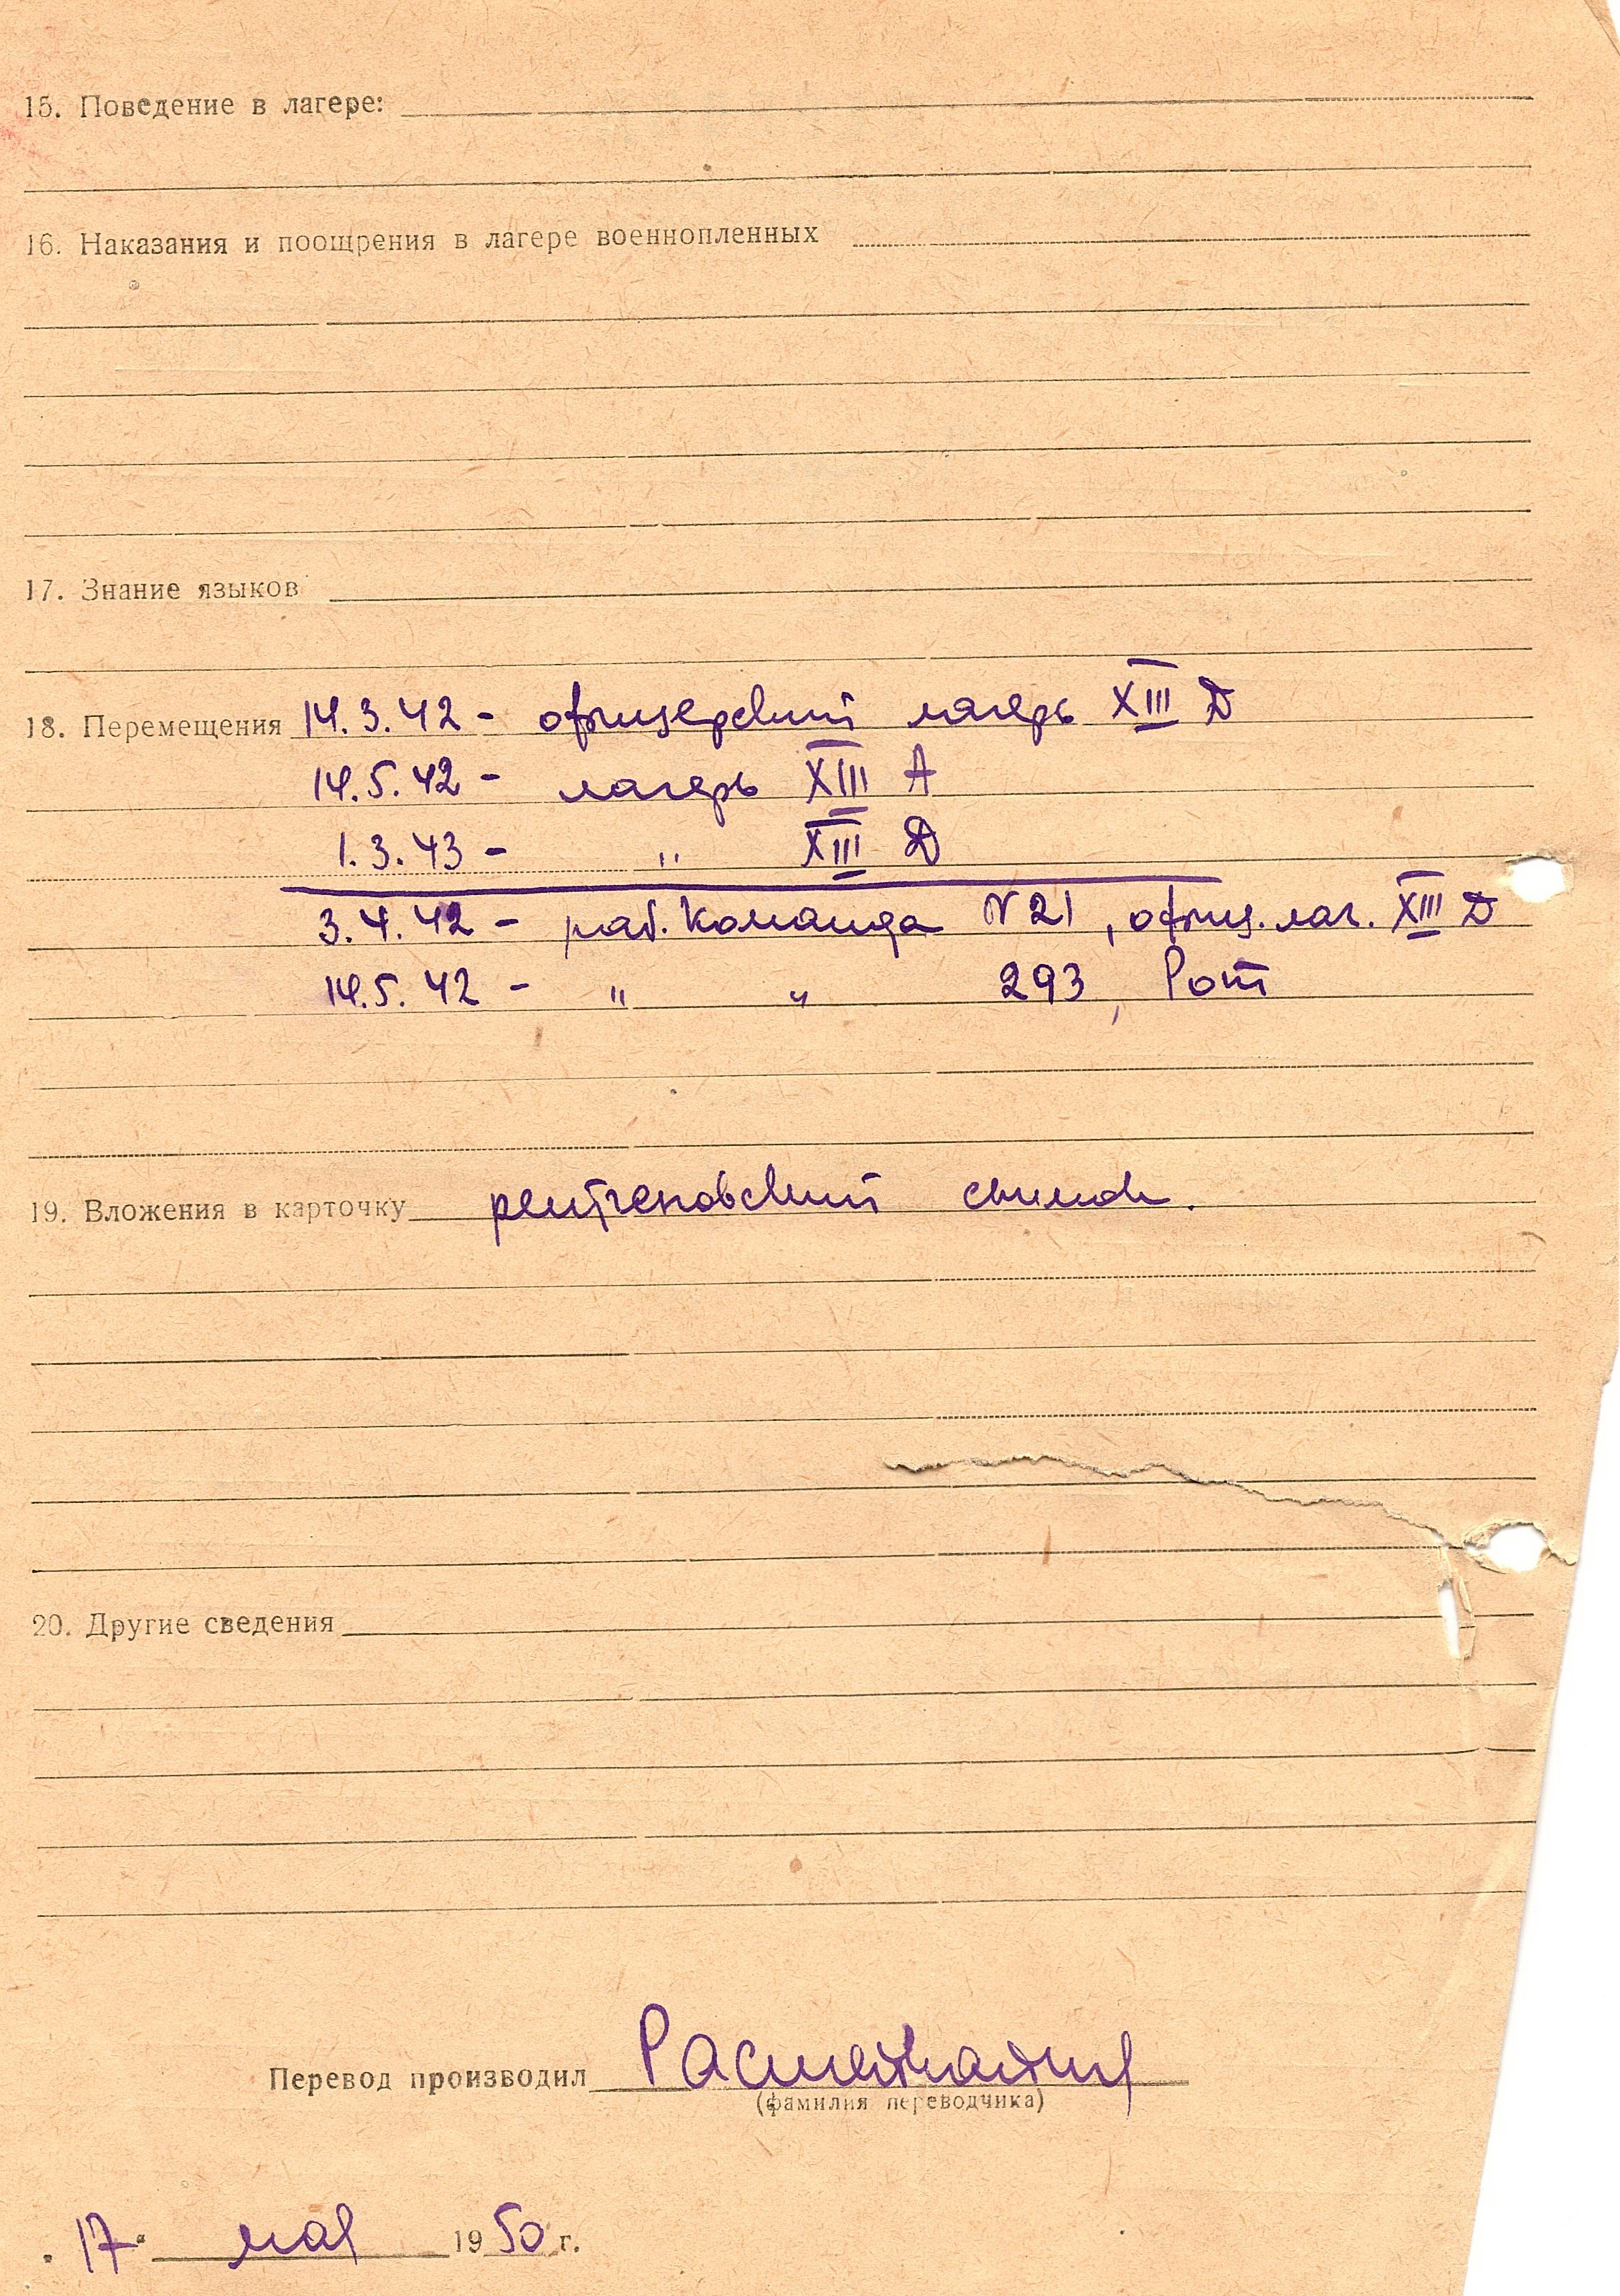 15. Поведение в лагере:
16. Наказания и поощрения в лагере военнопленных
17. Знание языков
18. Перемещения 14.3.42 - офицерский лагерь XIII D
14.5.42 - лагерь XIII A
1.3.43 - " XIII D
3.4.42 - раб. команда N 21, офиц. лаг. XIII D
14.5.42 - " " 293, Рот
19. Вложения в карточку рентгеновский снимок.
20. Другие сведения
Перевод производил
(фамилия переводчика)
"17" мая 1950 г.